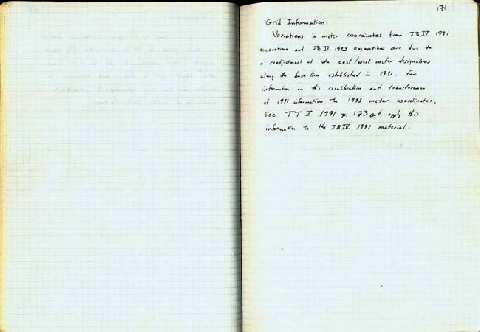 171
Grid Information:
Variations in meter coordinates from JBIV 1991
excavations and JBIV 1993 excavations are due to
a readjustment of the east/west meter designations
along the base line established in 1991. For
information on this recalibration and transference
of 1991 information to 1993 meter coordinates,
see I 1991 p. 173 this
information to the JBIV 1991 material.